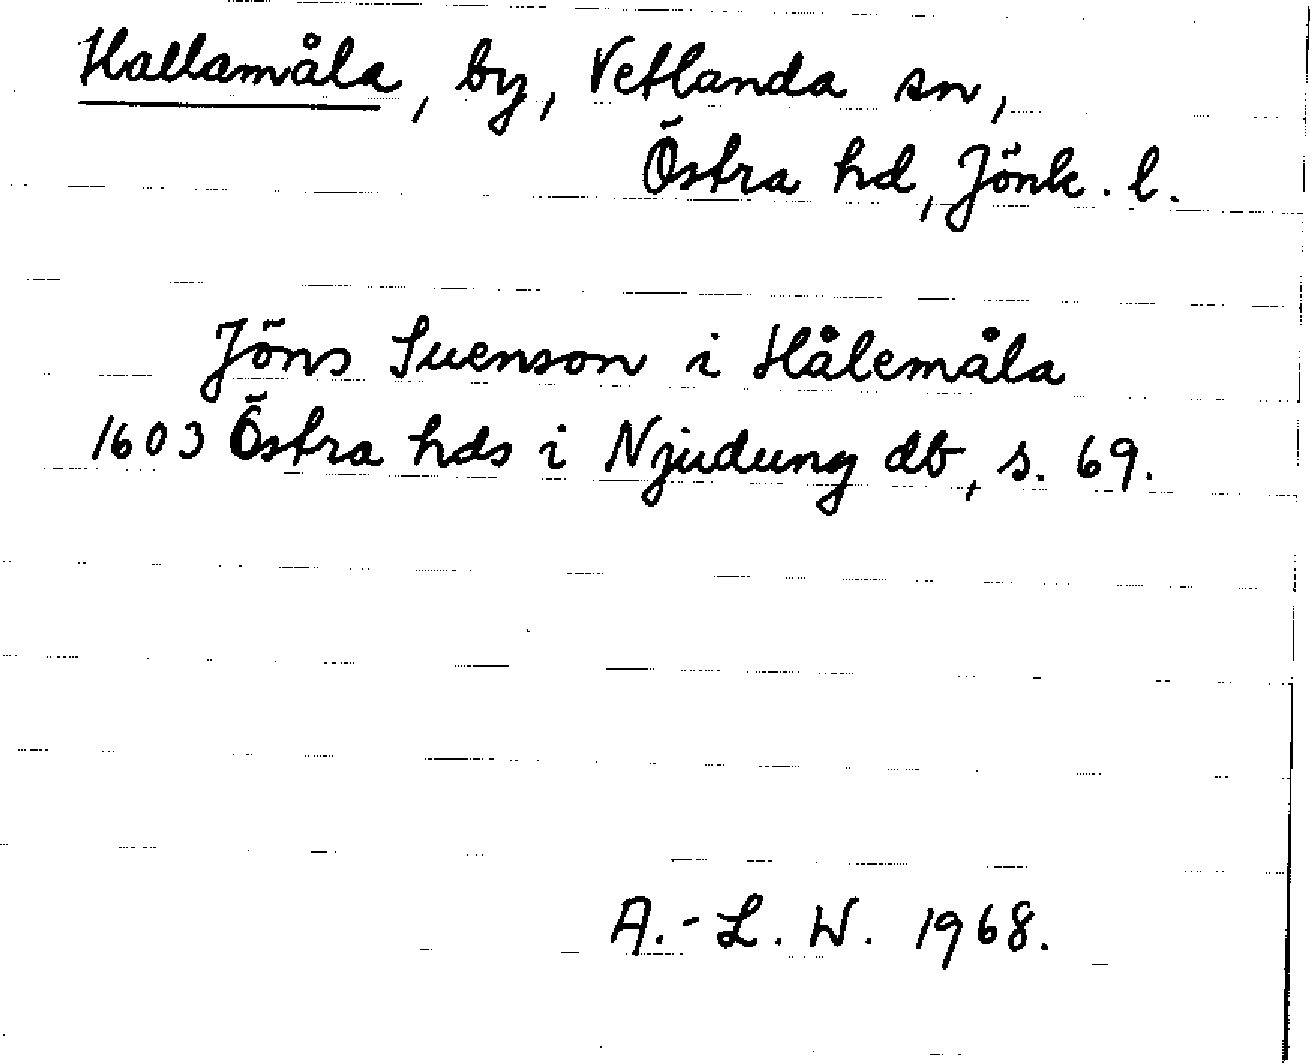 Hallamåla, by, Vetlanda sn,
Östra hd, Jönk. l.
Jöns Suenson i Hålemåla
1603 Östra hds i Njudung db, s. 69.
A.-L. W. 1968.